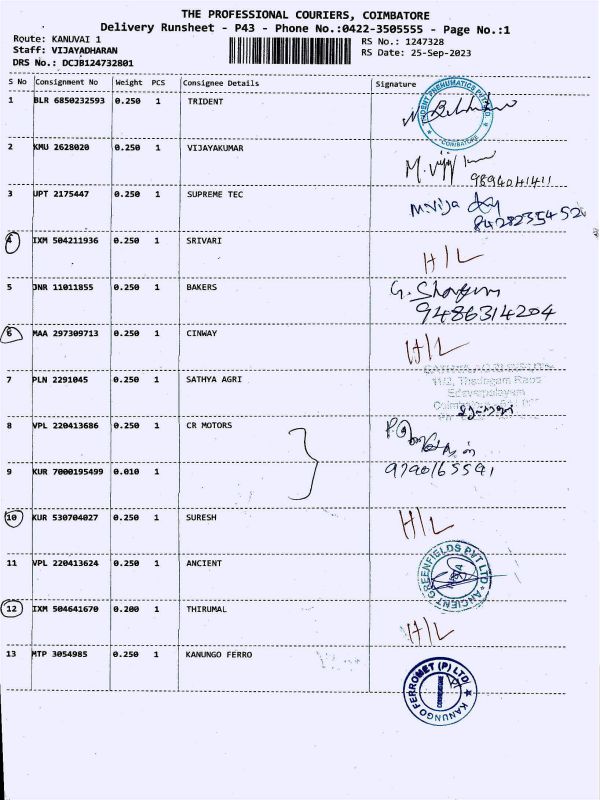 THE PROFESSIONAL COURIERS, COIMBATORE
Delivery Runsheet - P43 - Phone No.:0422-3505555 - Page No.:1
Route: KANUVAI 1 RS No.: 1247328
Staff: VIJAYADHARAN RS Date: 25-Sep-2023
DRS No.: DCJB124732801
S No Consignment No Weight PCS Consignee Details Signature
1 BLR 6850232593 0.250 1 TRIDENT
COIMBATORE
2 KMU 2628020 0.250 1 VIJAYAKUMAR M. 
9894041411
3 UPT 2175447 0.250 1 SUPREME TEC M.Vija
4 IXM 504211936 0.250 1 SRIVARI H/L
5 JNR 11011855 0.250 1 BAKERS G.
9486314204
6 MAA 297309713 0.250 1 CINWAY H/L
7 PLN 2291045 0.250 1 SATHYA AGRI
8 VPL 220413686 0.250 1 CR MOTORS
9 KUR 7000195499 0.010 1 9790165591
10 KUR 530704027 0.250 1 SURESH H/L
11 VPL 220413624 0.250 1 ANCIENT ANCIENT GREENFIELDS PVT LTD
12 IXM 504641670 0.200 1 THIRUMAL H/L
13 MTP 3054985 0.250 1 KANUNGO FERRO
KANUNGO FERROMET (P) LTD
COIMBATORE